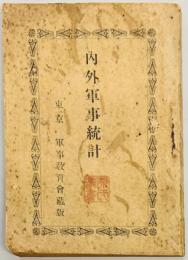 內外軍事統計
東京 軍事敎育會藏版